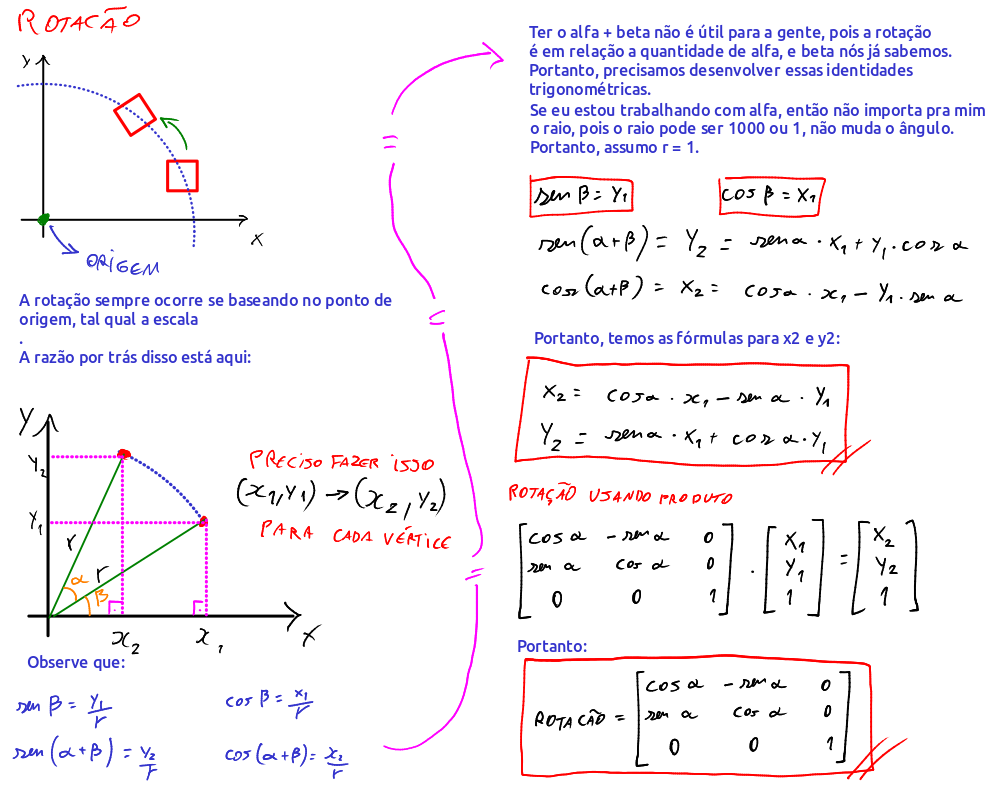 ROTACÃO
Y
X
ORIGEM
A rotação sempre ocorre se baseando no ponto de
origem, tal qual a escala
.
A razão por trás disso está aqui:
Y
Y2
Y1
r
r
α
β
x2
x1
X
PRECISO FAZER ISSO
(x1,Y1) → (x2,Y2)
PARA CADA VÉRTICE
Observe que:
sen β = Y1/r
cos β = x1/r
sen(α+β) = Y2/r
cos(α+β) = x2/r
=
=
=
Ter o alfa + beta não é útil para a gente, pois a rotação
é em relação a quantidade de alfa, e beta nós já sabemos.
Portanto, precisamos desenvolver essas identidades
trigonométricas.
Se eu estou trabalhando com alfa, então não importa pra mim
o raio, pois o raio pode ser 1000 ou 1, não muda o ângulo.
Portanto, assumo r = 1.
sen β = Y1
cos β = X1
sen(α+β) = Y2 = sen α · X1 + Y1 · cos α
cos(α+β) = X2 = cos α · x1 − Y1 · sen α
Portanto, temos as fórmulas para x2 e y2:
X2 = cos α · x1 − sen α · Y1
Y2 = sen α · X1 + cos α · Y1
ROTAÇÃO USANDO PRODUTO
cos α - sen α 0 X1 X2
sen α cos α 0 · Y1 = Y2
0 0 1 1 1
Portanto:
cos α - sen α 0
ROTACÃO = sen α cos α 0
0 0 1